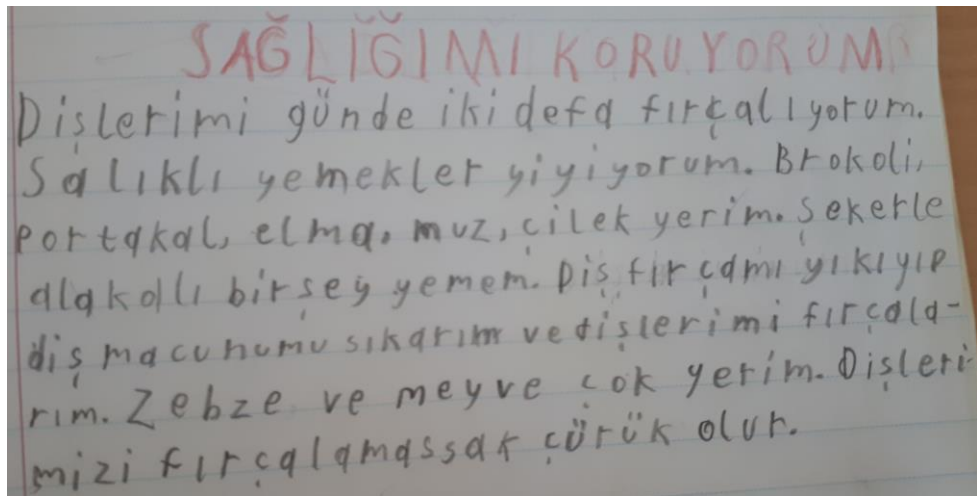 SAĞLIĞIMI KORUYORUM
Dişlerimi günde iki defa fırçalıyorum.
Salıklı yemekler yiyiyorum. Brokoli,
portakal, elma, muz, çilek yerim. Şekerle
alakalı birşey yemem. Diş fırçamı yıkıyıp
diş macunumu sıkarım ve dişlerimi fırçala-
rım. Zebze ve meyve çok yerim. Dişleri
mizi fırçalamassak çürük olur.